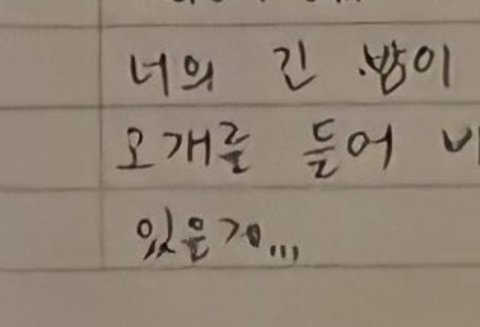 너의 긴 밤이
고개를 들어
있을거...